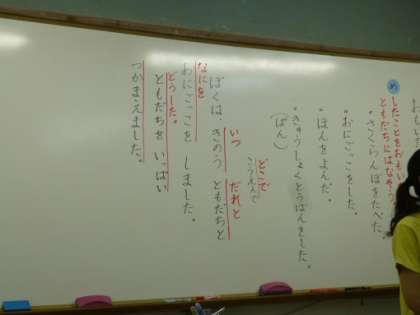 めしたことをおもい
ともだちにはなそう。
・さくらんぼをたべた。
・おにごっこをした。
・ほんをよんだ。
・きゅうしょくとうばんをした。
(ばん)
どこで
こうえんで
いつ だれと
ぼくは、きのう ともだちと
なにを
おにごっこを しました。
どうした。
ともだちを いっぱい
つかまえました。